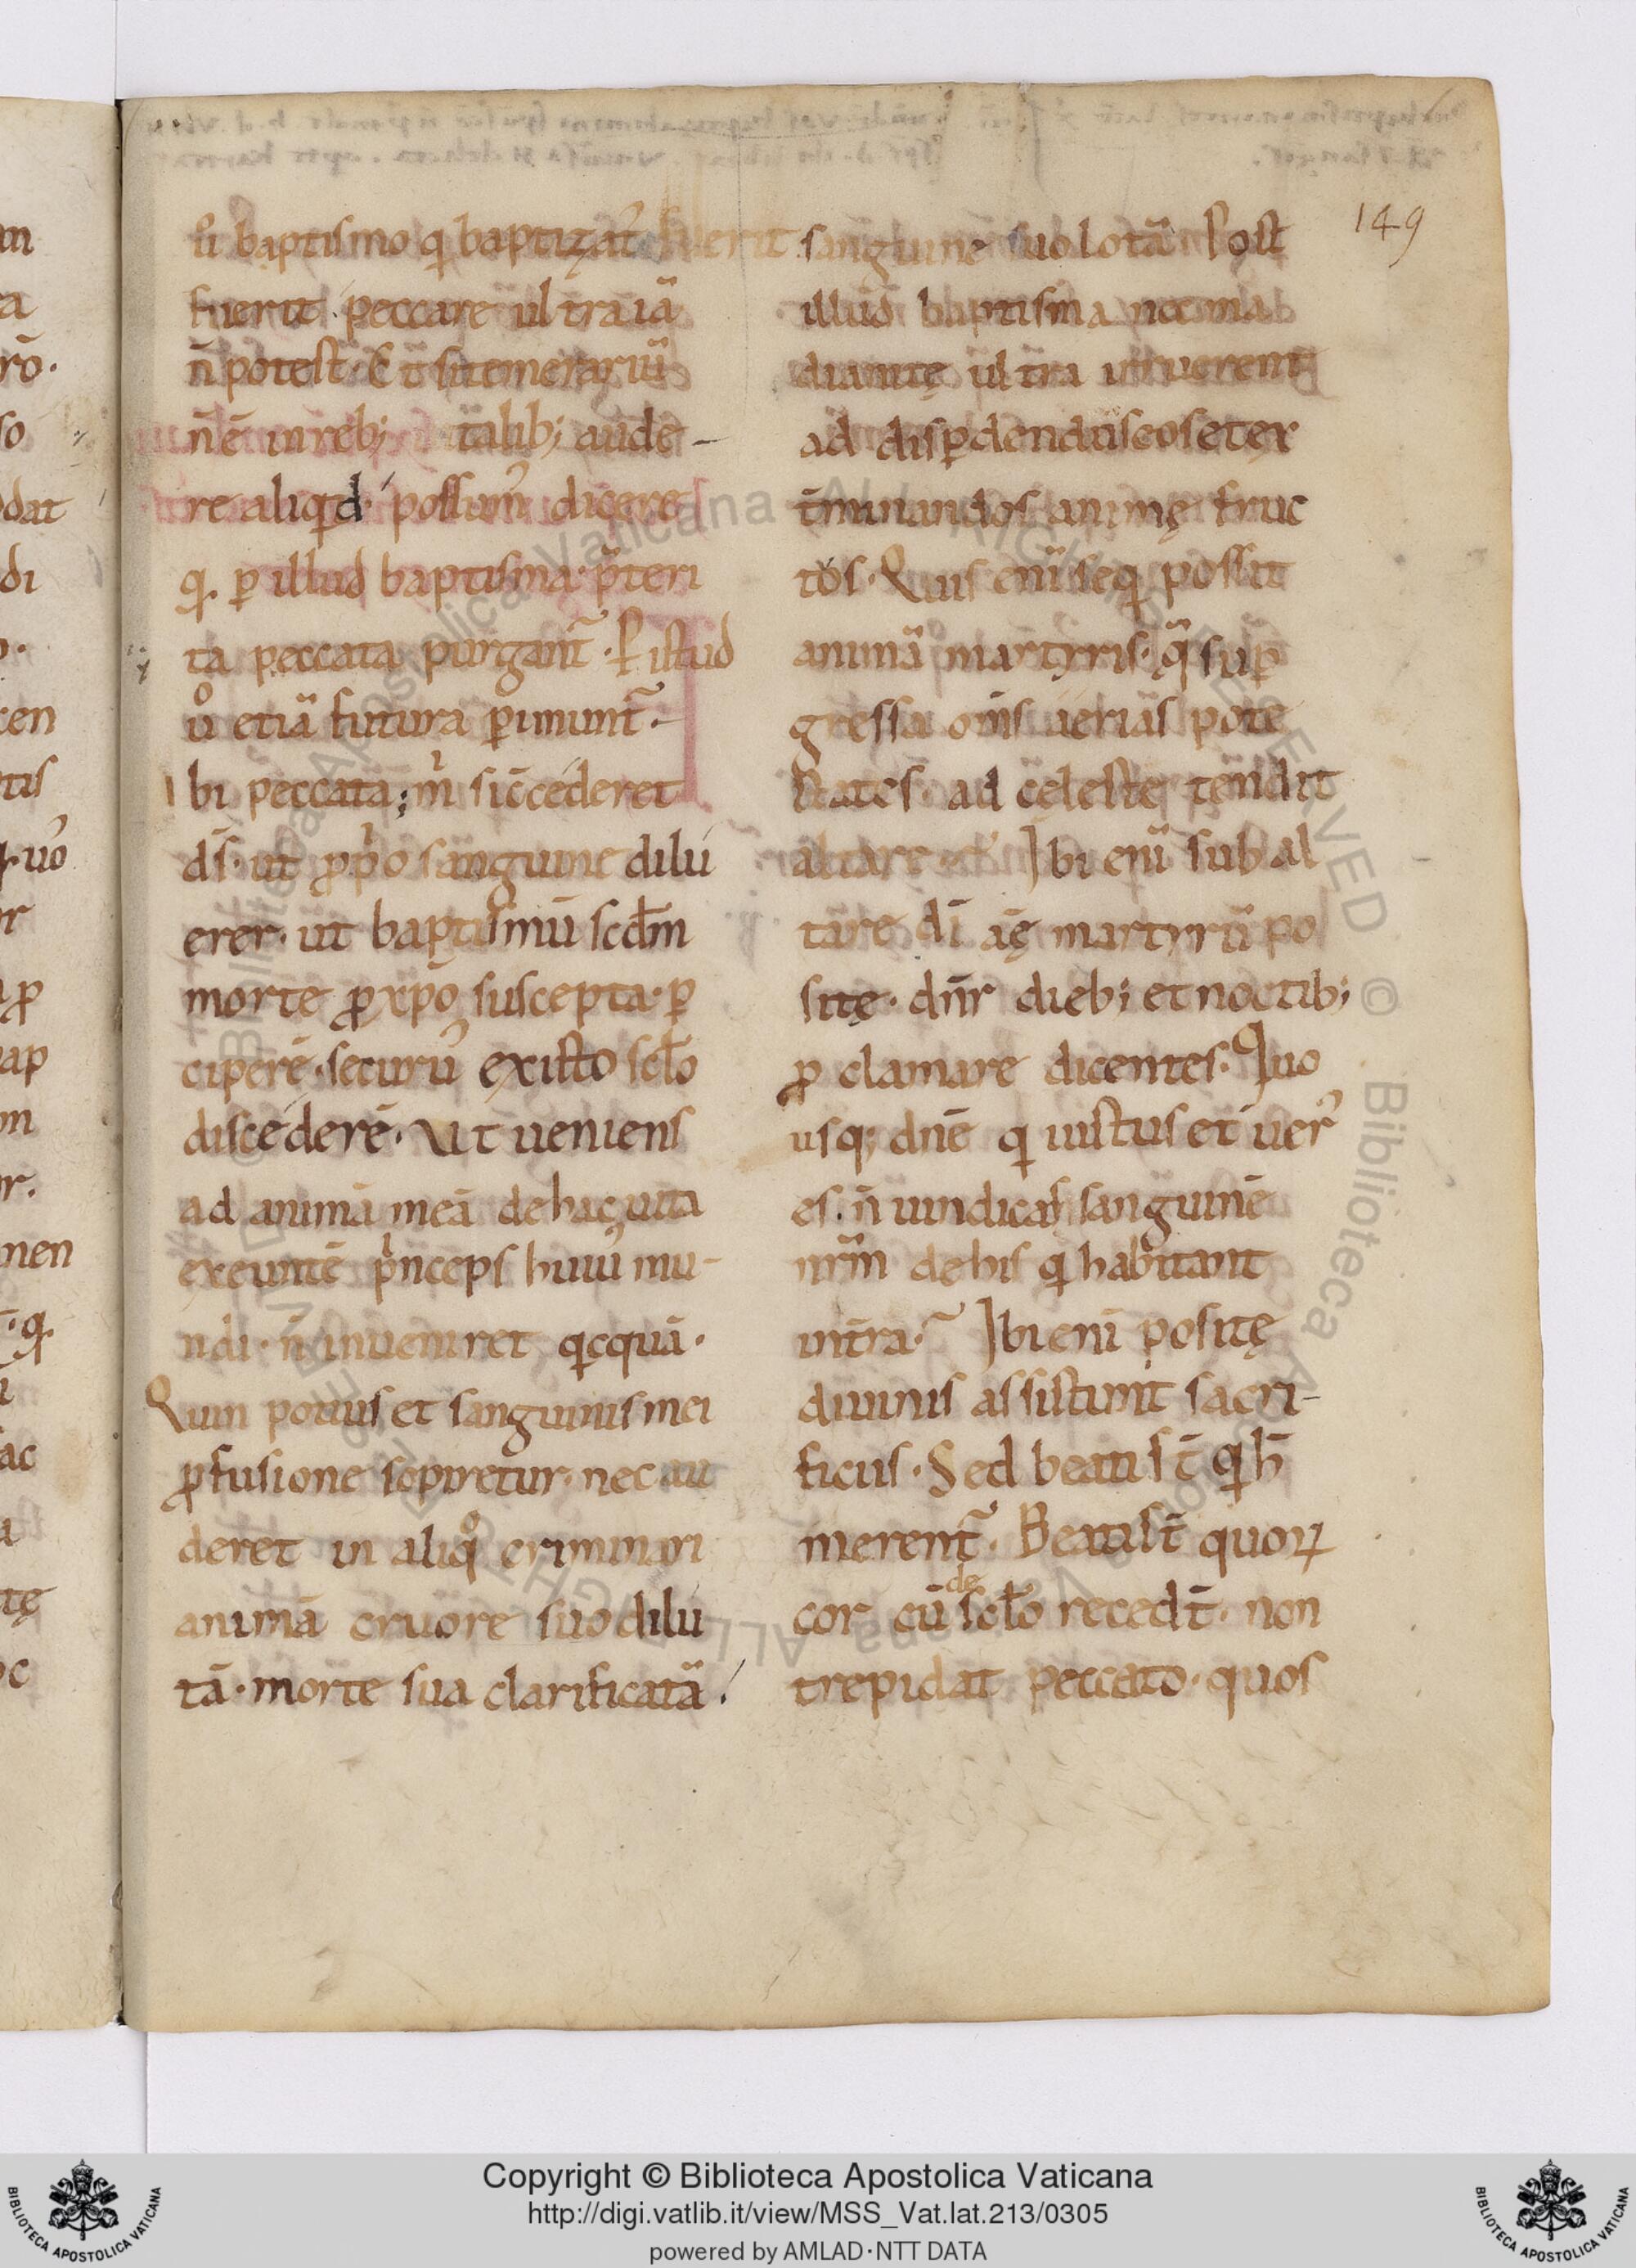 149
u̅o baptismo q baptizat᾽ fuerit
fuerit peccare ultra iā
n̄ potest. Et si temerariū
n̄ ē in reb; talib; aude-
re aliqd possum᾽ dicere
q. p illud baptisma p̄teri
ta peccata purgant᾽. P istud
u̅o etiā futura pimunt᾽.
bi peccata; m̍ si c̄cederet
ds̄. ut pp̍o sanguine dilu
erer. ut baptismū scd̄m
morte p xp̄o suscepta. p
cipere. securu᾽ ex isto scl̄o
discederē. Ut ueniens
ad animā meā de hac uita
exeuntē p̍nceps huiu᾽ mu-
ndi. n̄ inueniret qcquā.
Quin potius et sanguinis mei
pfusione sopiretur. nec au
deret in aliqo criminari
animā cruore suo dilu
tā. morte sua clarificatā.
sanguine suo lotā Post
illud baptisma
ultra irruerent
ad dispdendus eos et ex
t̄minandos animę fruc
tos. Quis eni seq possit
animā martyris. q̄ sup
gressa om̄s aerias pote
states. ad cęleste tendit
altare Ibi eni sub al
tare dī aīę martyrū po
sitę. dn̄r dieb; et noctib;
p clamare dicentes. Quo
usq; dn̄e q iustus et uer᾽
es. n̄ uindicas sanguinē
nr̄m de his q habitant
in tra. Ibi eni positę
diuinis assistunt sacri-
ficiis. Sed beati st̄ q h̄
merent᾽. Beati st̄ quoꝝ
cor cū de scl̄o recedt̄. non
trepidat peccato. quos
Copyright © Biblioteca Apostolica Vaticana
http://digi.vatlib.it/view/MSS_Vat.lat.213/0305
powered by AMLAD·NTT DATA
BIBLIOTECA APOSTOLICA VATICANA
BIBLIOTECA APOSTOLICA VATICANA